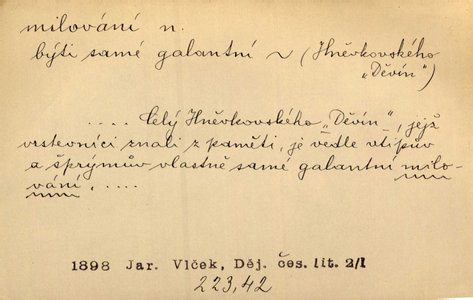 milování n.
býti samé galantní ~ (Hněvkovského
„Děvín")
.... Celý Hněvkovského „Děvín", jejž
vrstevníci znali z paměti, je vedle vtipův
a šprýmův vlastně samé galantní milo-
vání, ....
1898 Jar. Vlček, Děj. čes. lit. 2/I
223,42